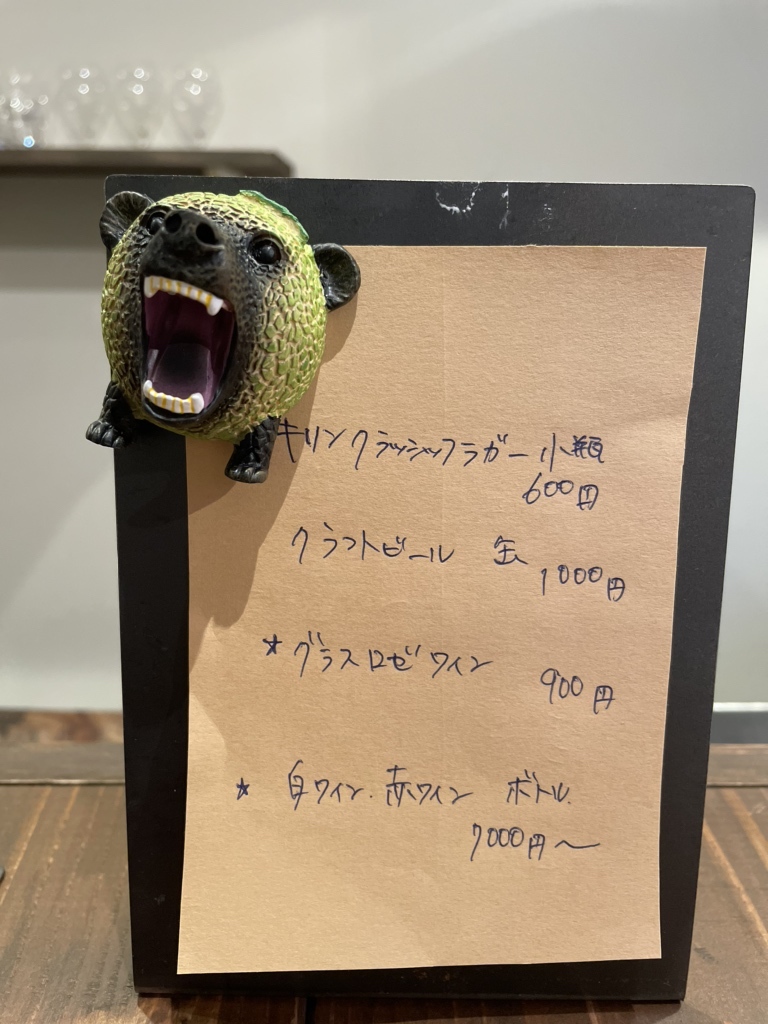 キリンクラッシックラガー小瓶
600円
クラフトビール 缶
1000円
★グラスロゼワイン 900円
★白ワイン.赤ワイン ボトル.
7000円～